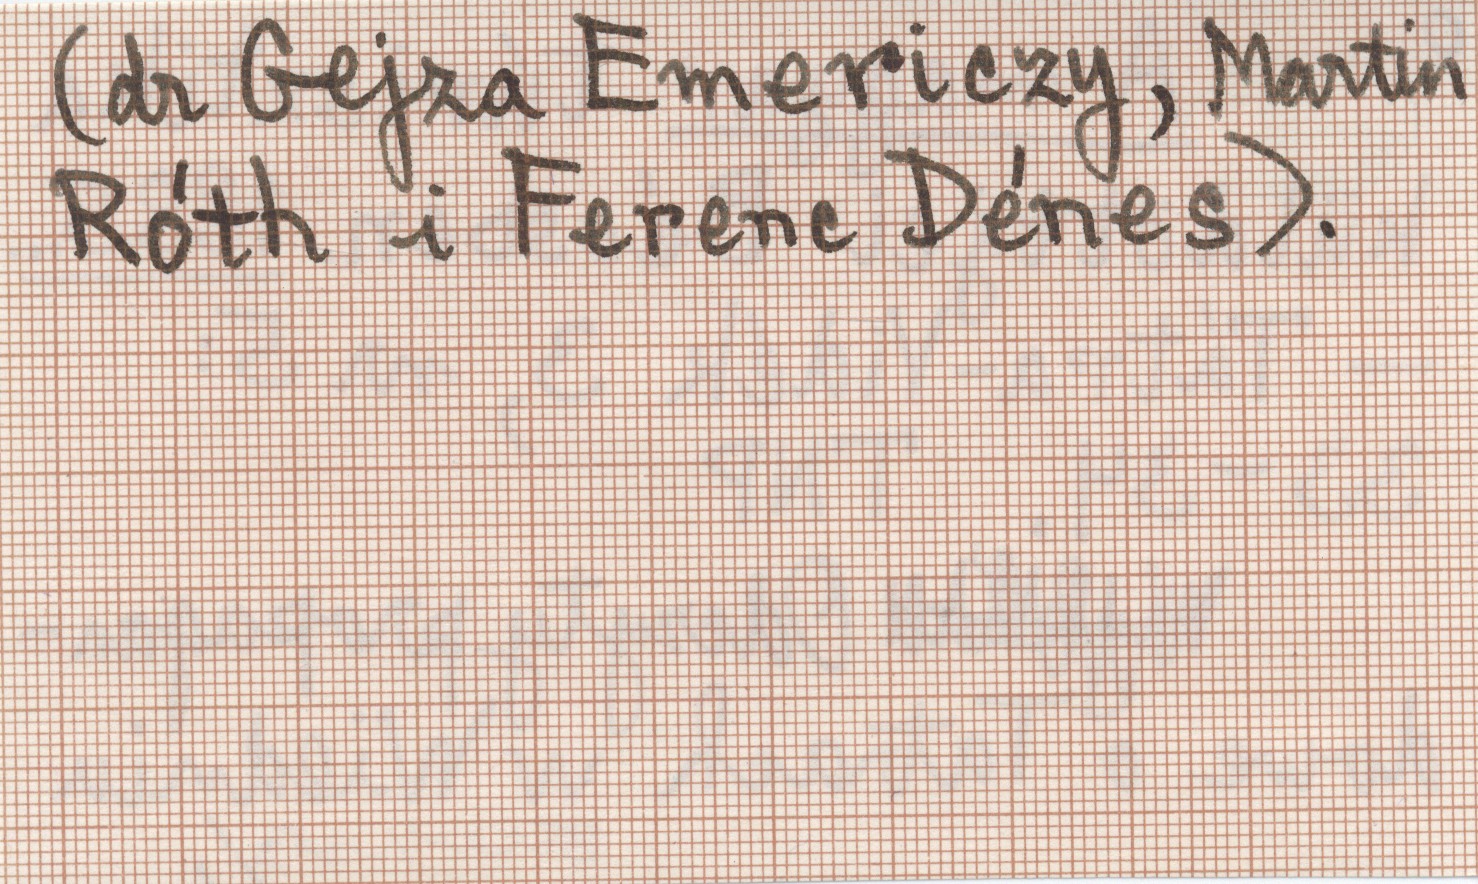 (dr Gejza Emericzy, Martin
Róth i Ferenc Dénes).